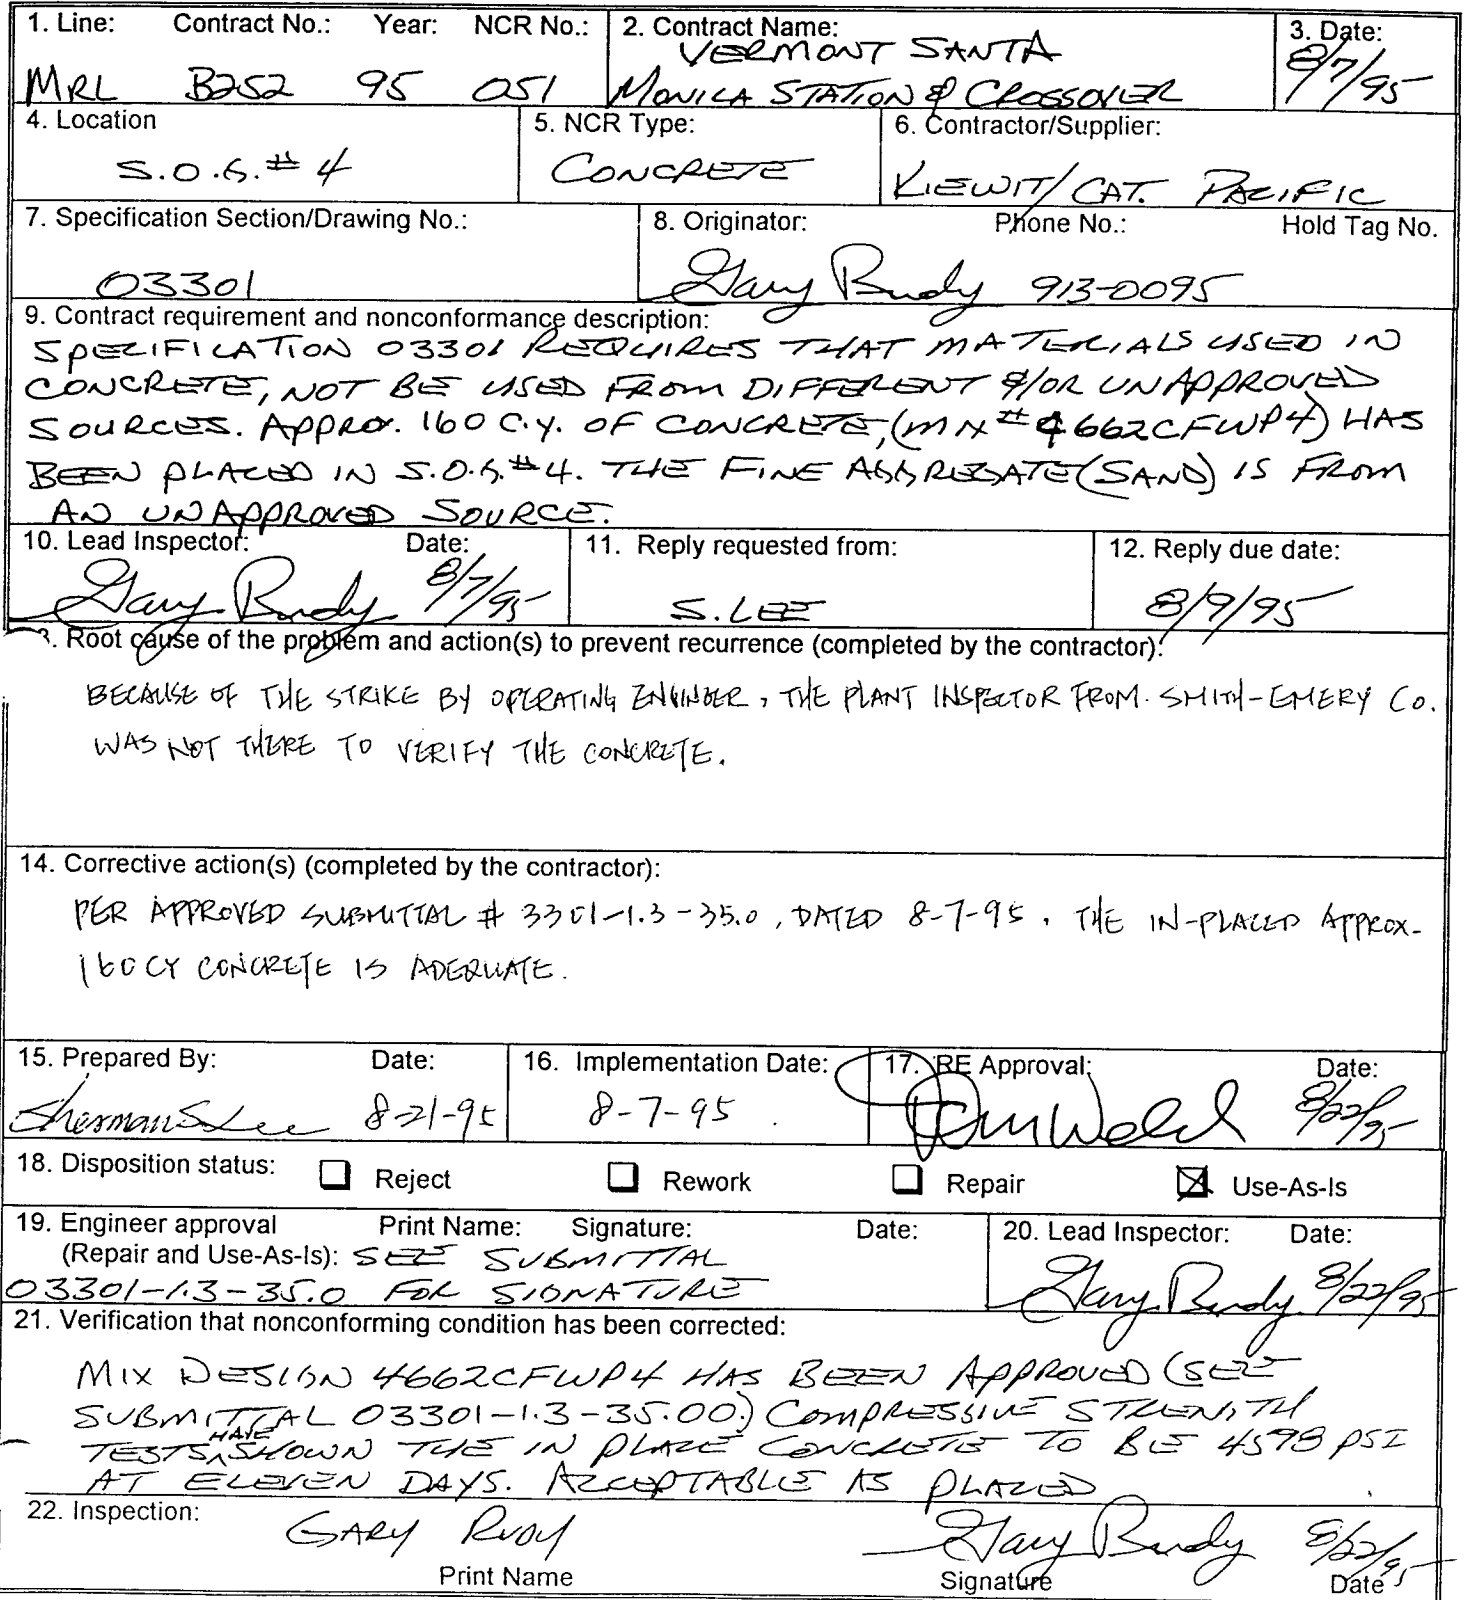 1. Line: Contract No.: Year: NCR No.:
MRL B252 95 051
2. Contract Name:
VERMONT SANTA
MONICA STATION & CROSSOVER
3. Date:
8/7/95
4. Location
S.O.G. # 4
5. NCR Type:
CONCRETE
6. Contractor/Supplier:
KIEWIT/CAT. PACIFIC
7. Specification Section/Drawing No.:
03301
8. Originator: Phone No.: Hold Tag No.
Gary Rudy 913-0095
9. Contract requirement and nonconformance description:
SPECIFICATION 03301 REQUIRES THAT MATERIALS USED IN
CONCRETE, NOT BE USED FROM DIFFERENT &/OR UNAPPROVED
SOURCES. APPRO. 160 C.Y. OF CONCRETE, (MIX # 4662CFWP4) HAS
BEEN PLACED IN S.O.G. #4. THE FINE AGGREGATE (SAND) IS FROM
AN UNAPPROVED SOURCE.
10. Lead Inspector: Date:
Gary Rudy 8/7/95
11. Reply requested from:
S. LEE
12. Reply due date:
8/9/95
3. Root cause of the problem and action(s) to prevent recurrence (completed by the contractor):
BECAUSE OF THE STRIKE BY OPERATING ENGINEER, THE PLANT INSPECTOR FROM SMITH-EMERY CO.
WAS NOT THERE TO VERIFY THE CONCRETE.
14. Corrective action(s) (completed by the contractor):
PER APPROVED SUBMITTAL # 3301-1.3-35.0, DATED 8-7-95, THE IN-PLACED APPROX-
160 CY CONCRETE IS ADEQUATE.
15. Prepared By: Date:
Sherman S Lee 8-21-95
16. Implementation Date:
8-7-95
17. RE Approval: Date:
8/22/95
18. Disposition status: Reject Rework Repair Use-As-Is
19. Engineer approval Print Name: Signature: Date:
(Repair and Use-As-Is): SEE SUBMITTAL
03301-1.3-35.0 FOR SIGNATURE
20. Lead Inspector: Date:
Gary Rudy 8/22/95
21. Verification that nonconforming condition has been corrected:
MIX DESIGN 4662CFWP4 HAS BEEN APPROVED (SEE
SUBMITTAL 03301-1.3-35.00.) COMPRESSIVE STRENGTH
TESTS HAVE SHOWN THE IN PLACE CONCRETE TO BE 4598 PSI
AT ELEVEN DAYS. ACCEPTABLE AS PLACED
22. Inspection:
GARY RUDY Gary Rudy 8/22/95
Print Name Signature Date